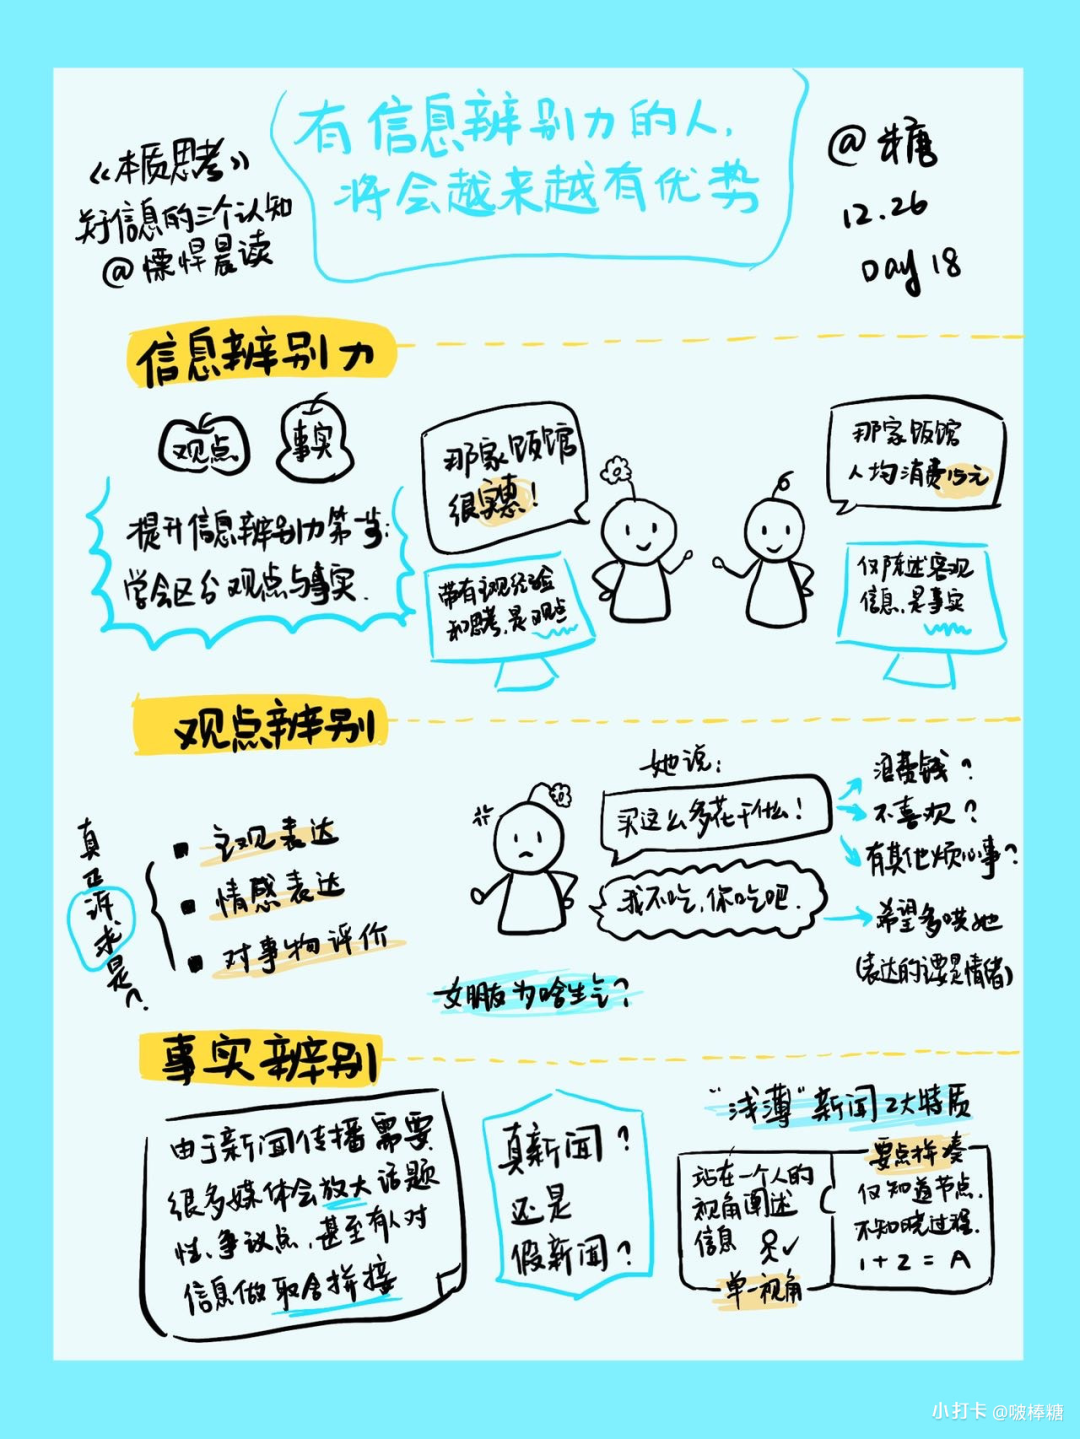 有信息辨别力的人,
将会越来越有优势
《本质思考》
关于信息的三个认知
@慓悍晨读
@糖
12.26
Day 18
信息辨别力
观点
事实
提升信息辨别力第一步:
学会区分观点与事实.
那家饭馆
很实惠!
带有主观经验
和思考,是观点
那家饭馆
人均消费15元
仅陈述客观
信息,是事实
观点辨别
真正诉求是?
主观表达
情感表达
对事物评价
她说:
买这么多花干什么!
我不吃,你吃吧.
浪费钱?
不喜欢?
有其他烦心事?
希望多哄她
(表达的谭是情绪)
女朋友为啥生气?
事实辨别
由于新闻传播需要
很多媒体会放大话题
性、争议点,甚至有人对
信息做取舍拼接
真新闻?
还是
假新闻?
"浅薄"新闻2大特质
站在一个人的
视角阐述
信息
单一视角
要点拼凑
仅知道节点.
不知晓过程.
1+2=A
小打卡 @啵棒糖